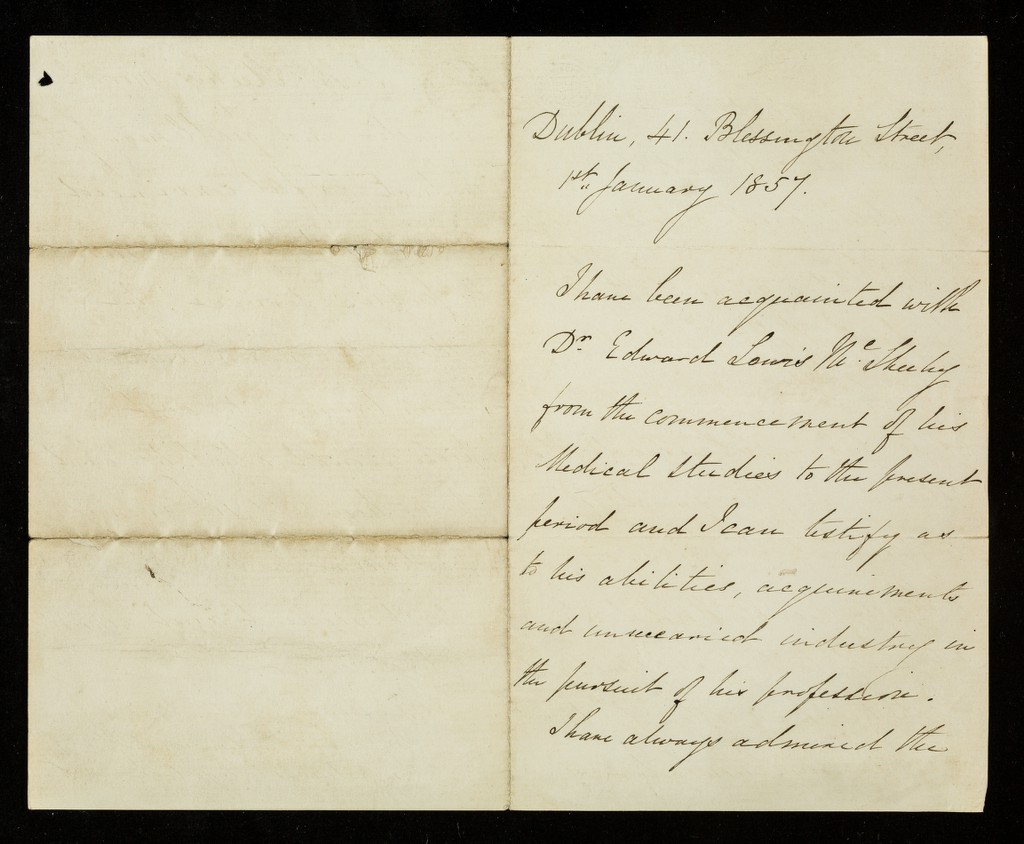 Dublin, 41. Blessington Street,
1st January 1857.
I have been acquainted with
Dr Edward Lewis Mc. Sheehy
from the commencement of his
Medical studies to the present
period and I can testify as
to his abilities, acquirements
and unwearied industry in
the pursuit of his profession.
I have always admired the